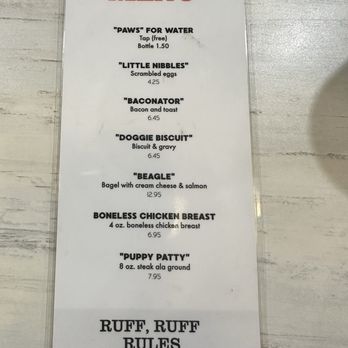 "PAWS" FOR WATER
Tap (free)
Bottle 1.50
"LITTLE NIBBLES"
Scrambled eggs
4.25
"BACONATOR"
Bacon and toast
6.45
"DOGGIE BISCUIT"
Biscuit & gravy
6.45
"BEAGLE"
Bagel with cream cheese & salmon
12.95
BONELESS CHICKEN BREAST
4 oz. boneless chicken breast
6.95
"PUPPY PATTY"
8 oz. steak ala ground
7.95
RUFF, RUFF
RULES